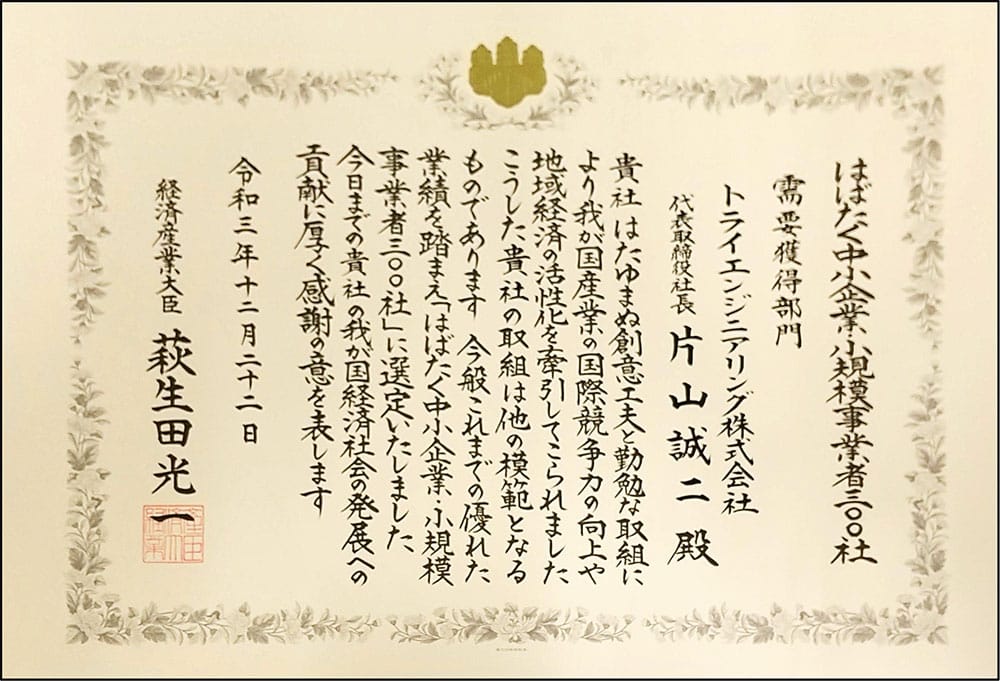 はばたく中小企業・小規模事業者三〇〇社
需要獲得部門
トライエンジニアリング株式会社
代表取締役社長 片山誠二殿
貴社はたゆまぬ創意工夫と勤勉な取組に
より我が国産業の国際競争力の向上や
地域経済の活性化を牽引してこられました
こうした貴社の取組は他の模範となる
ものであります 今般これまでの優れた
業績を踏まえ「はばたく中小企業・小規模
事業者三〇〇社」に選定いたしました
今日までの貴社の我が国経済社会の発展への
貢献に厚く感謝の意を表します
令和三年十二月二十二日
経済産業大臣 萩生田光一